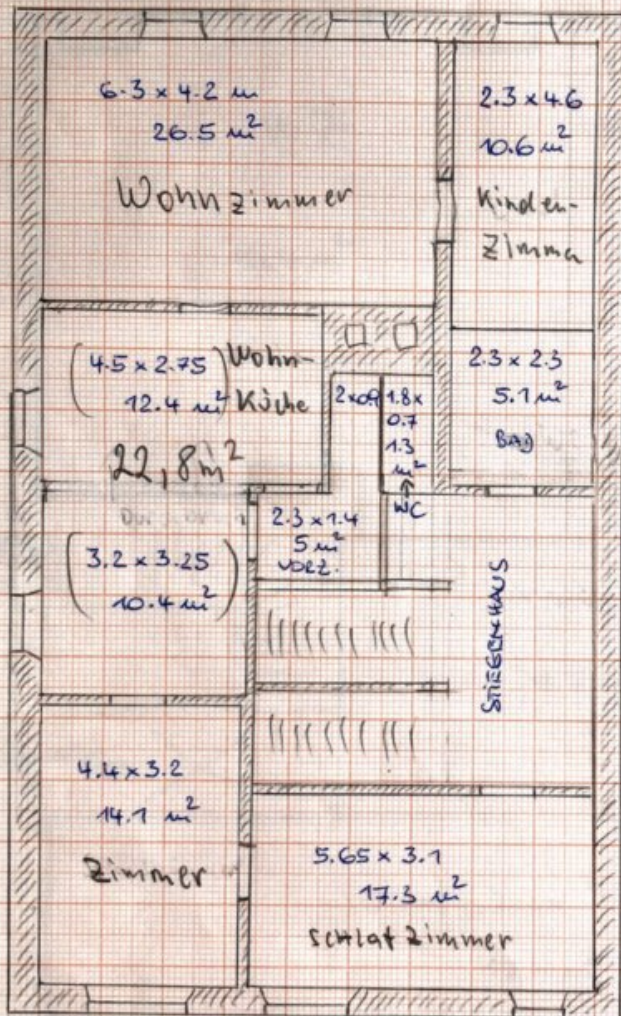 6.3 x 4.2 m
26.5 m²
Wohnzimmer
2.3 x 4.6
10.6 m²
Kinder-
Zimma
(4.5 x 2.75)
12.4 m²
Wohn-
Küche
22,8 m²
(3.2 x 3.25)
10.4 m²
2x0.9
1.8 x
0.7
1.3
m²
WC
2.3 x 2.3
5.1 m²
BAD
2.3 x 1.4
5 m²
VORZ.
STIEGENHAUS
4.4 x 3.2
14.1 m²
Zimmer
5.65 x 3.1
17.3 m²
schlafzimmer